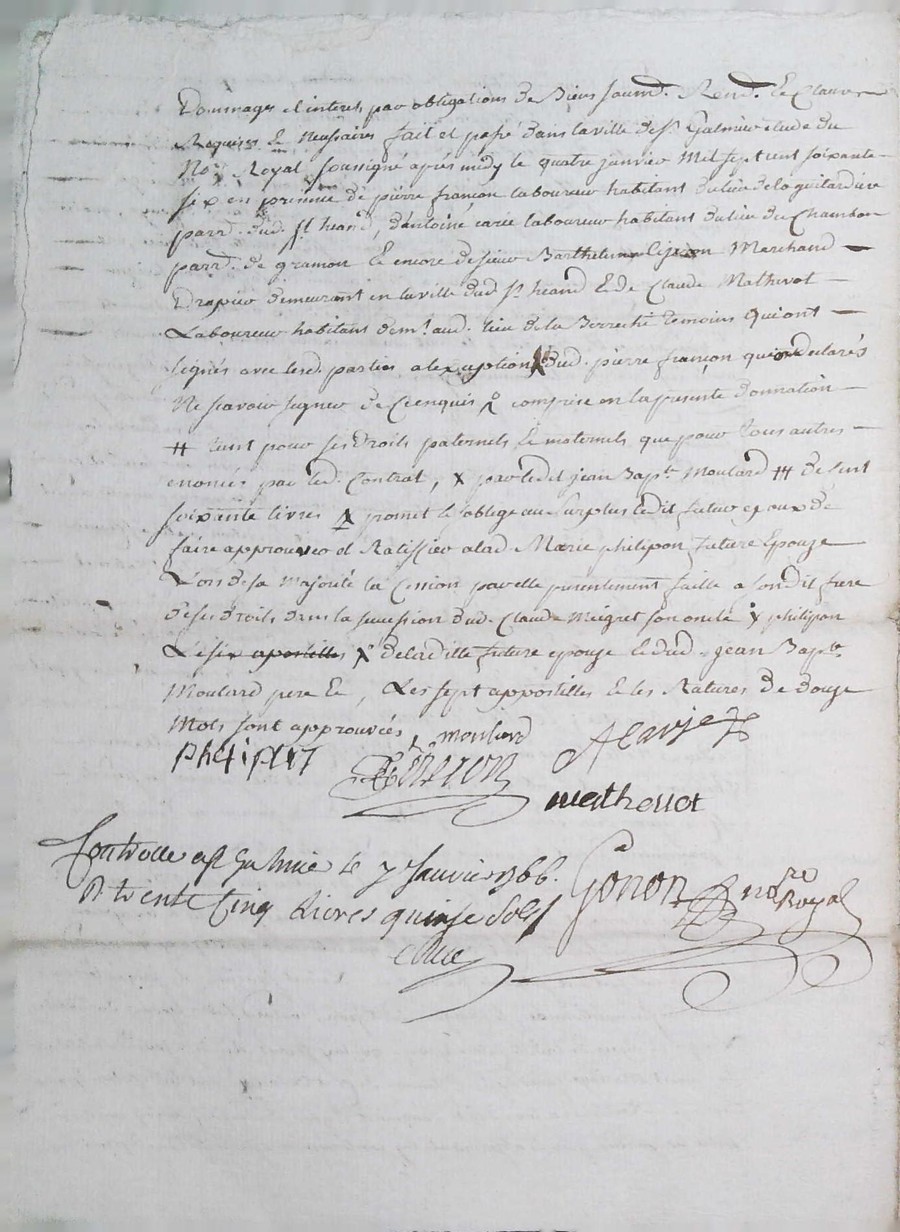 Dommages et interets par obligations de Biens soumd. Rend. &e Clauses
Requises &e Nessaires fait et passé dans la ville de St Galmier etude du
Nore Royal soussigné après midy le quatre janvier Mil sept cent soixante
six en presence de pierre françon laboureur habitant du lieu de la guitardiere
parr. dud. St heand, d'antoine carie laboureur habitant du lieu du Chambon
parrd. de gramon &e encore de sieur Barthelemy Marchand
Drapier demeurant en la ville dud St heand &e de Claude Mathevot
Laboureur habitant dem! aud. lieu de la Berreche temoins qui ont
signés avec lesd. parties a lexception dud. pierre françon qui declarés
Ne scavoir signer de Ce enquis comprise en la presente donnation
# tant pour ses Droits paternels &e maternels que pour tous autres
enoncés par led. Contrat, x par ledit jean Bapte Moulard ## de cent
soixante livres x promet &e oblige au surplus ledit futur epoux de
faire approuver et Ratiffier a lad Marie philipon future Epouze
Lors de sa majorité la Cession par elle presentement faitte a son dit frere
de ses droits dans la succession dud. Claude Meigret son oncle x philipon
Lesix apostilles x de la ditte future epouze &e dud. jean Bapte
Moulard pere &e, Les sept appostilles &e les Ratures de douze
Mots sont approuvées, moulard
philipon
mathevot
Controlle a St Galmier le 7 Janvier 1766.
Rt trente Cinq Livres quinse sols
Gonon nore Royal